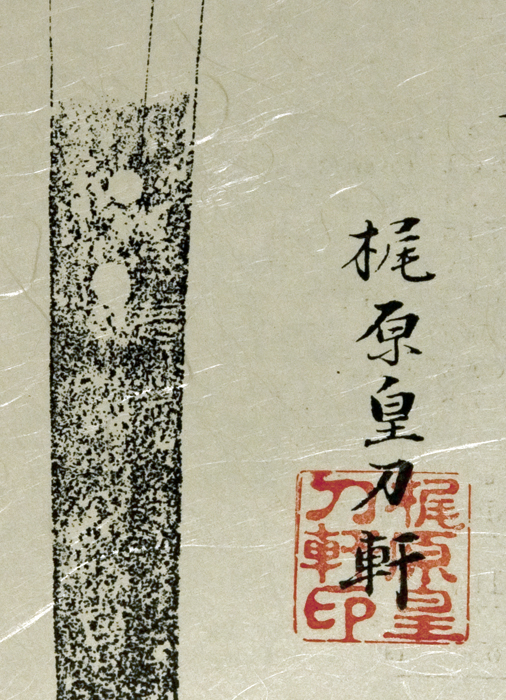 梶原皇刀軒
梶原皇
刀軒印